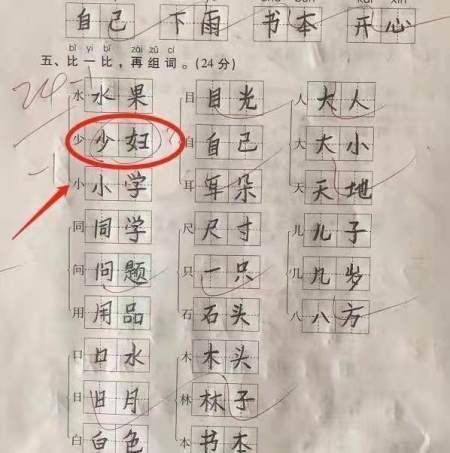 自己 下雨 书本 开心
bǐ yi bǐ zài zǔ cí
五、比一比，再组词。(24分)
24-1
水 水果 目 目光 人 大人
少 少妇 自 自己 大 大小
-1
小 小学 耳 耳朵 天 天地
同 同学 尺 尺寸 儿 儿子
问 问题 只 一只 几 几岁
用 用品 石 石头 八 八方
口 口水 木 木头
日 日月 林 林子
白 白色 本 书本